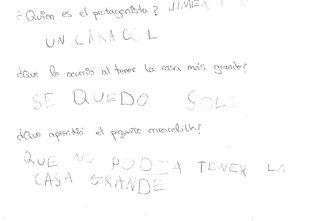 ¿Quien es el protagonista?
UN CARACOL
¿Que le ocurrio al tener la casa más grande?
SE QUEDO SOLO
¿Que aprendió el pequeño caracolillo?
QUE NO PODIA TENER LA
CASA GRANDE